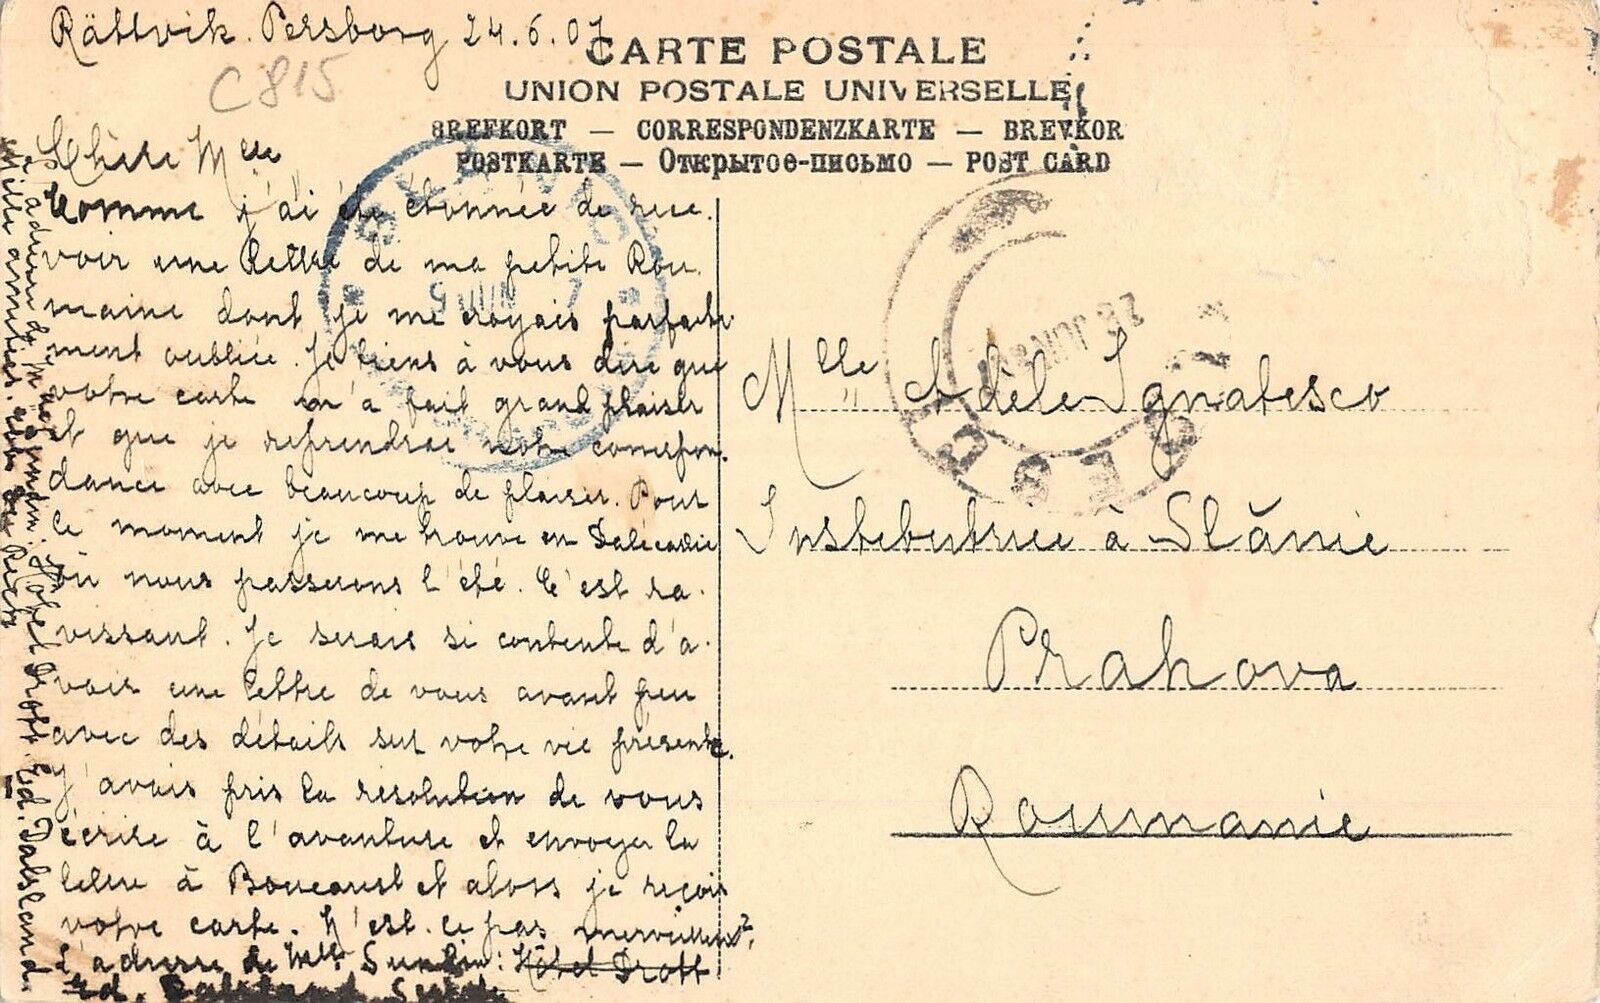 Rättvik. Persborg 24.6.07
C815
CARTE POSTALE
UNION POSTALE UNIVERSELLE
BREFKORT — CORRESPONDENZKARTE — BREVKOR
POSTKARTE — Открытое-письмо — POST CARD
Chère Mlle
Comme j'ai été étonnée de rece.
voir une lettre de ma petite Rou.
maine dont je me croyais parfaite
ment oubliée. Je tiens à vous dire que
votre carte m'a fait grand plaisir
et que je reprendrai notre correspon.
dance avec beaucoup de plaisir. Pour
le moment je me trouve en Dalécarlie
où nous passerons l'été. C'est ra.
vissant. Je serais si contente d'a.
voir une lettre de vous avant peu
avec des détails sur votre vie présente.
J'avais pris la résolution de vous
écrire à l'aventure et envoyer la
lettre à Boucarest et alors je reçois
votre carte. N'est-ce pas merveilleux?
L'adresse de Mlle Sundin: Hôtel Drott
Ed. Dalsland
L'adresse de Mlle Sundin. Hôtel Drott. Ed. Dalsland.
Mille amitiés
Mlle Adèle Ignatesco
Institutrice à Slănic
Prahova
Roumanie
26 JUN 907